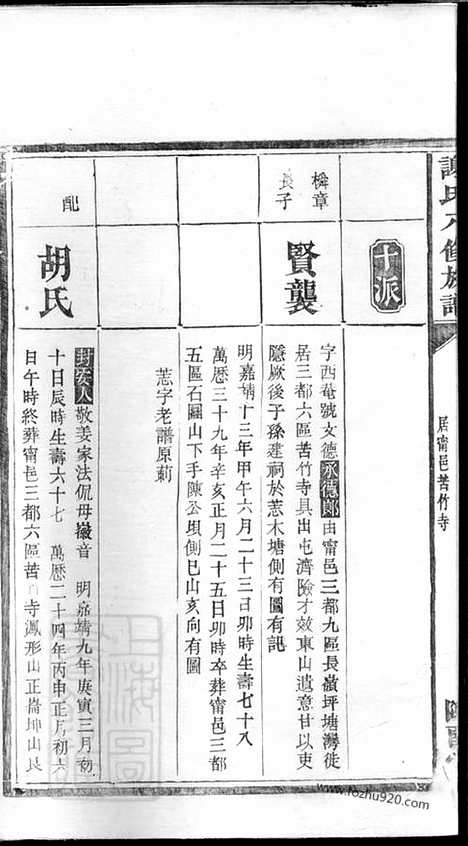 謝氏八修族譜
居甯邑苦竹寺
十派
橓章
長子
賢襲
字西奄號文德承德郎由甯邑三都九區長嶺坪塘灣徙
居三都六區苦竹寺具出屯濟險才效東山遺意甘以吏
隱厥後子孫建祠於莣木塘側有圖有記
明嘉靖十三年甲午六月二十三日卯時生壽七十八
萬歷三十九年辛亥正月二十五日卯時卒葬甯邑三都
五區石圓山下手陳公壩側巳山亥向有圖
莣字老譜原莿
配
胡氏
封安人敬姜家法侃母徽音 明嘉靖九年庚寅三月初
十日辰時生壽六十七 萬歷二十四年丙申正月初六
日午時終葬甯邑三都六區苦 寺鳳形山正崙坤山艮
www.fozhu920.com